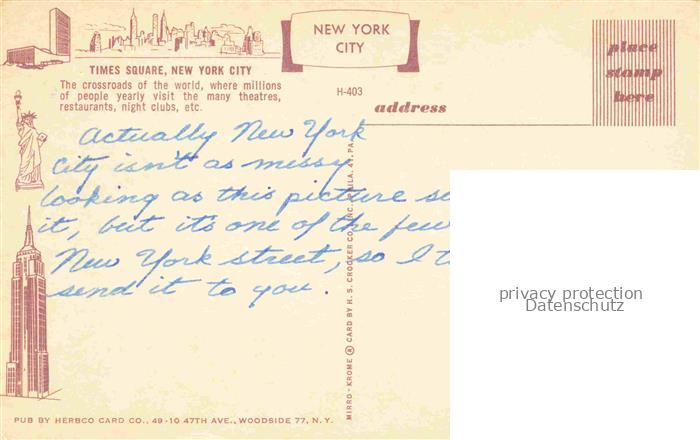 NEW YORK
CITY
place
stamp
here
TIMES SQUARE, NEW YORK CITY
The crossroads of the world, where millions
of people yearly visit the many theatres,
restaurants, night clubs, etc.
H-403
address
Actually New York
City isn't as messy
looking as this picture
it, but it's one of the few
New York street, so I
send it to you.
privacy protection
Datenschutz
MIRRO-KROME ® CARD BY H. S. CROCKER CO., INC., PHILA. 47, PA.
PUB BY HERBCO CARD CO., 49-10 47TH AVE., WOODSIDE 77, N.Y.